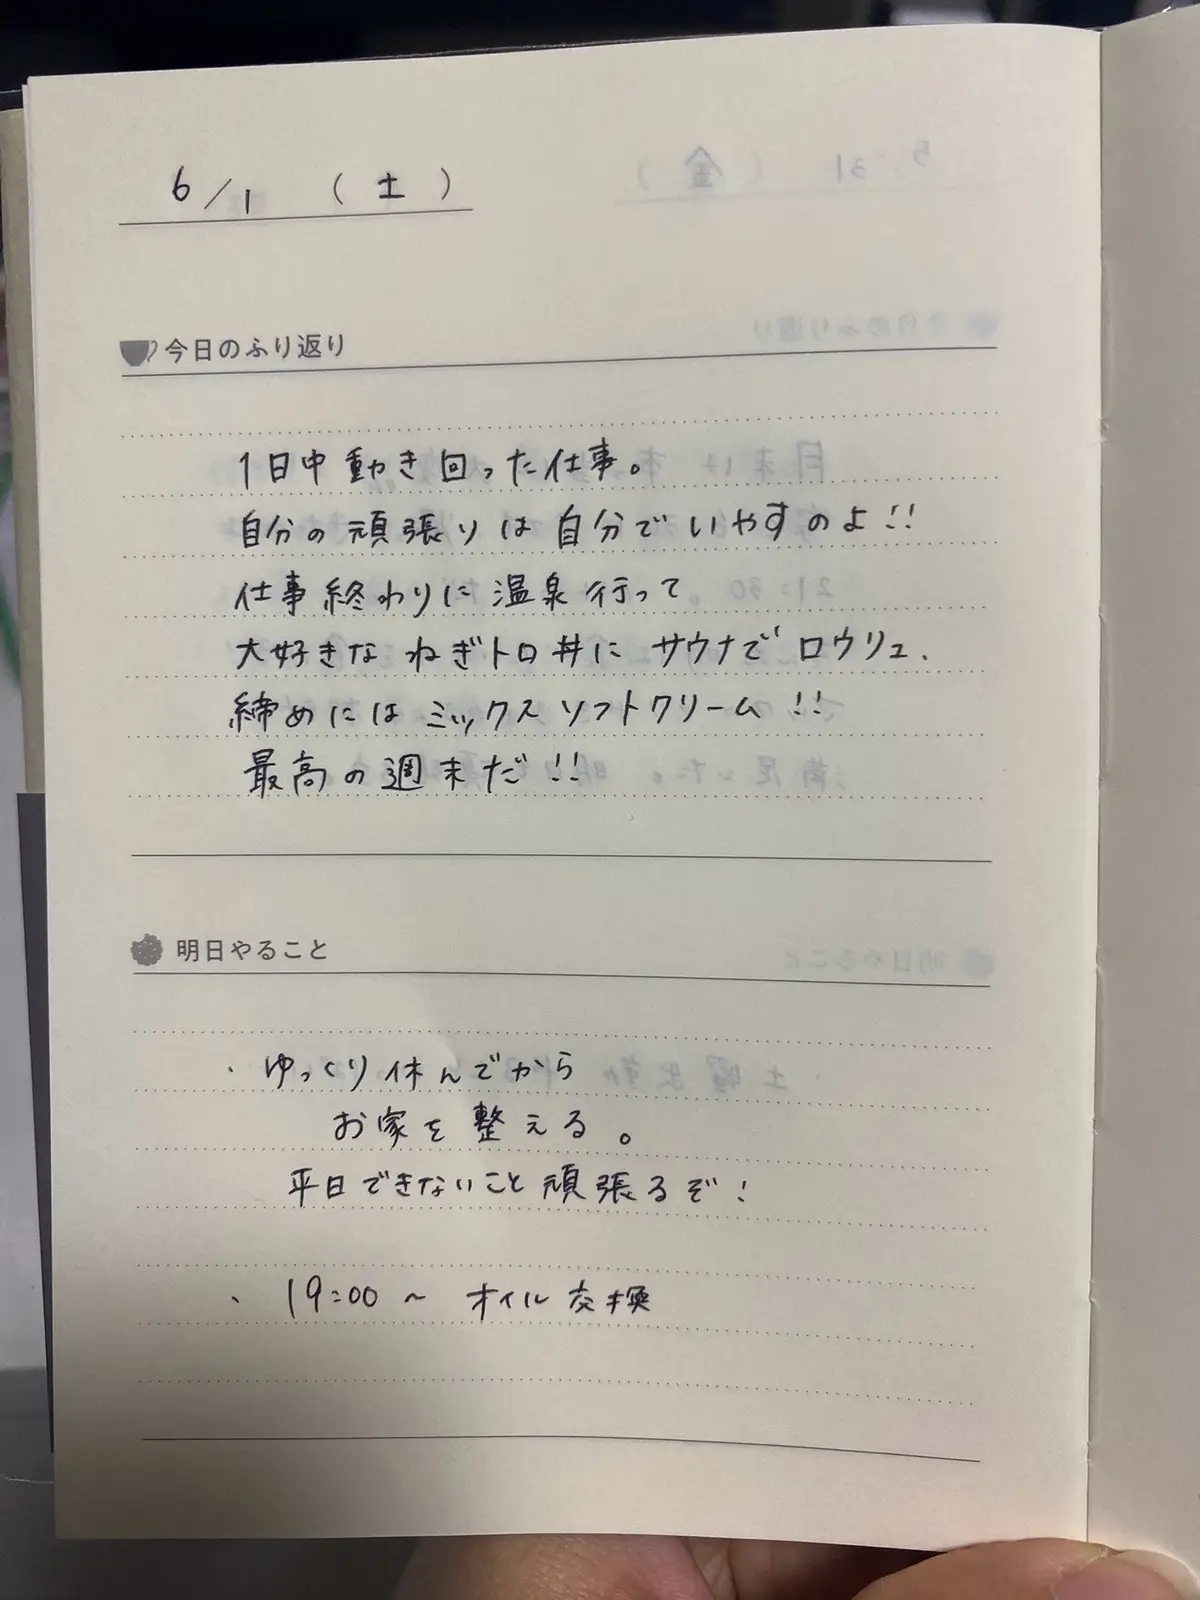 6/1 (土)
今日のふり返り
1日中動き回った仕事。
自分の頑張りは自分でいやすのよ!!
仕事終わりに温泉行って
大好きなねぎトロ丼にサウナでロウリュ、
締めにはミックスソフトクリーム!!
最高の週末だ!!
明日やること
・ゆっくり休んでから
お家を整える。
平日できないこと頑張るぞ!
・19:00~ オイル交換